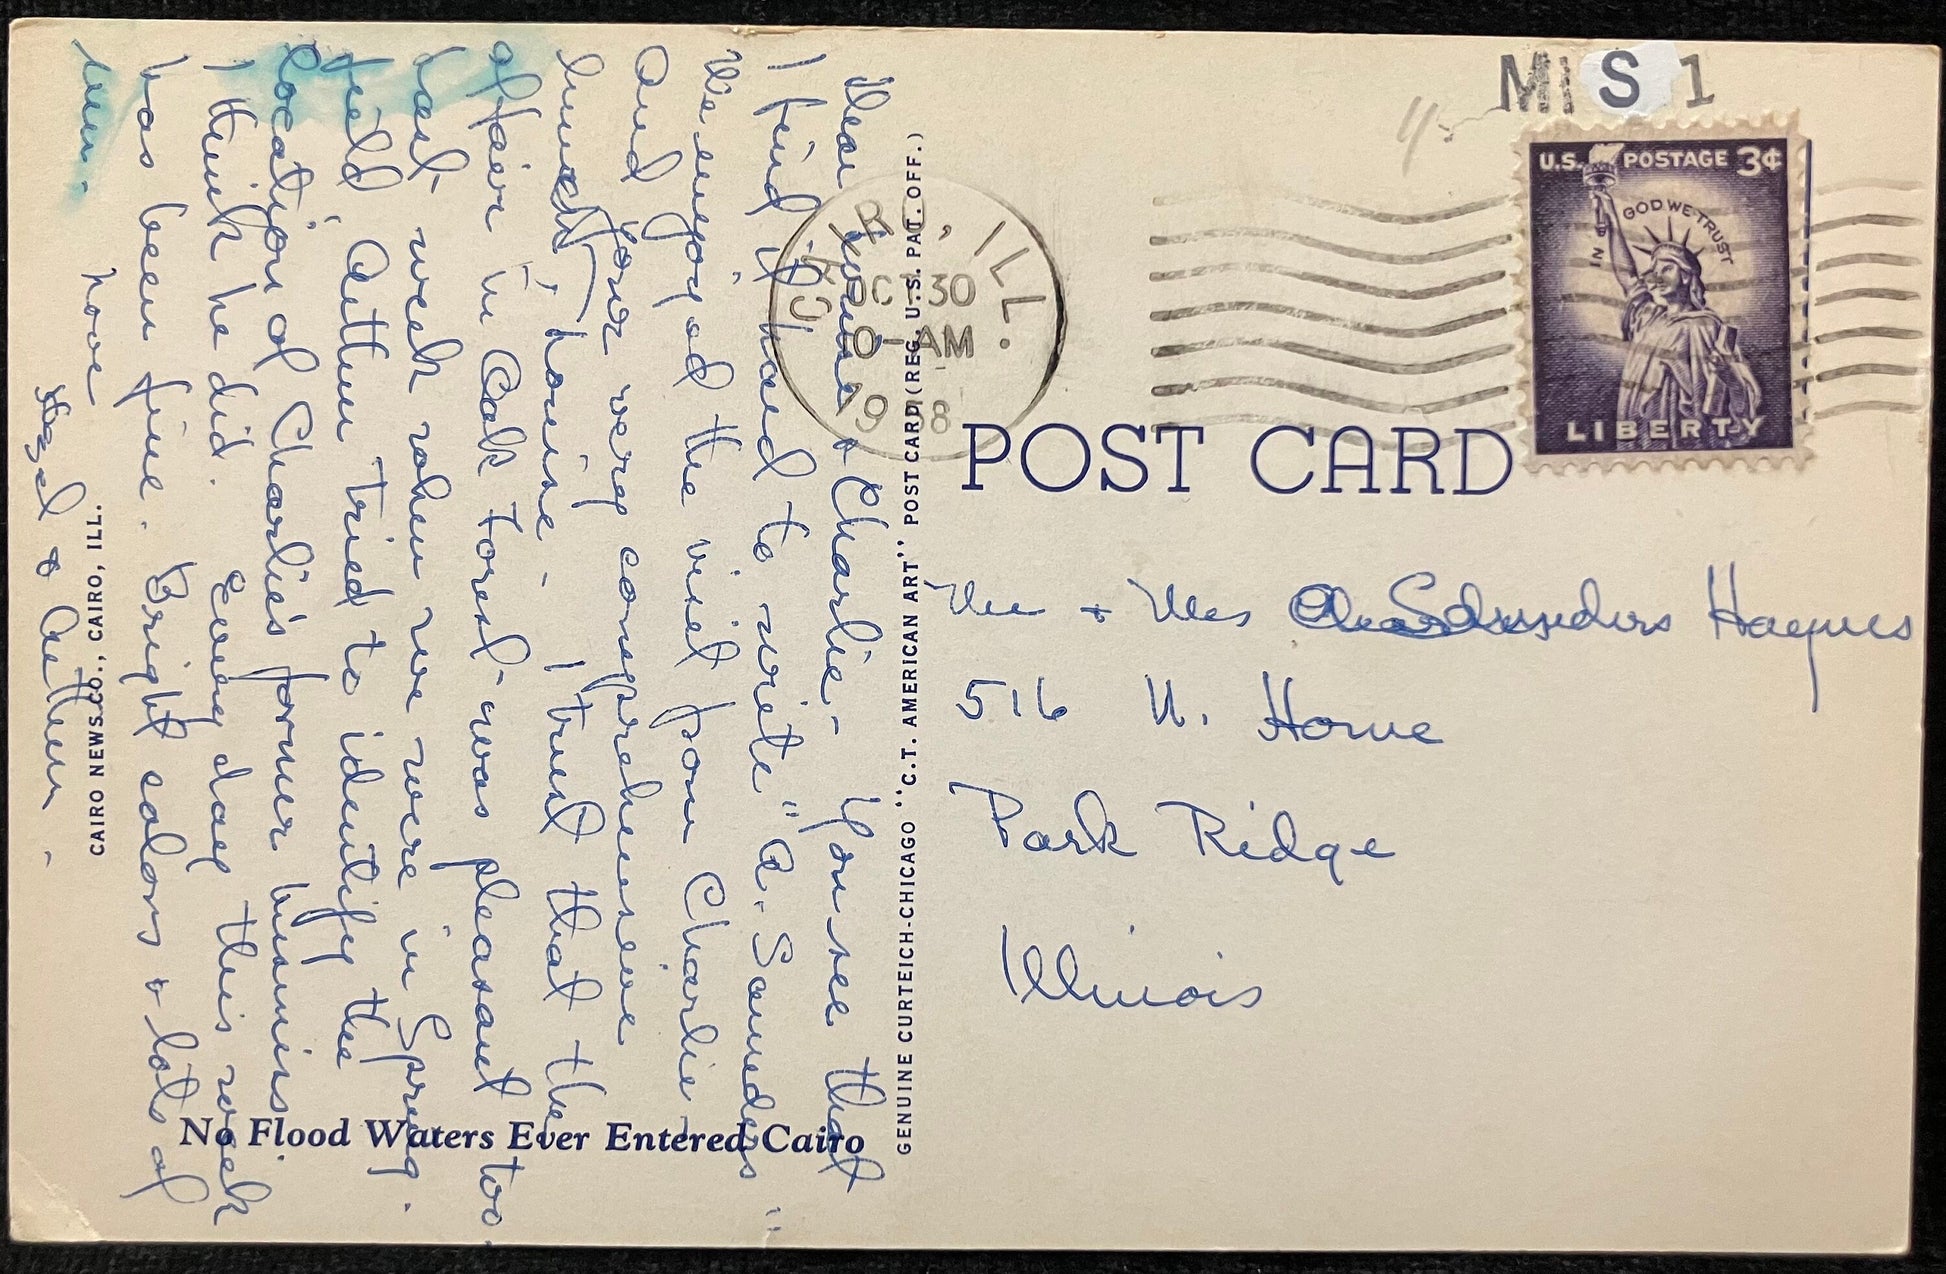 Dear Lorna & Charlie,- You see that
I find it hard to write "A. Saunders"
We enjoyed the visit from Charlie -
And your very comprehensive
lunch, Lorine - I trust that the
affair in Oak Forest - was pleasant too
Last week when we were in Spring
field, Arthur tried to identify the
location of Charlie's former business.
I think he did. Every day this week
has been fine. Bright colors & lots of
sun.
Love
Hazel & Arthur -
CAIRO NEWS CO., CAIRO, ILL.
No Flood Waters Ever Entered Cairo
GENUINE CURTEICH-CHICAGO "C.T. AMERICAN ART" POST CARD (REG. U.S. PAT. OFF.)
MIS 1
U.S. POSTAGE 3¢
IN GOD WE TRUST
LIBERTY
CAIRO, ILL.
OCT 30
AM
POST CARD
Mr + Mrs Saunders Haynes
516 N. Home
Park Ridge
Illinois